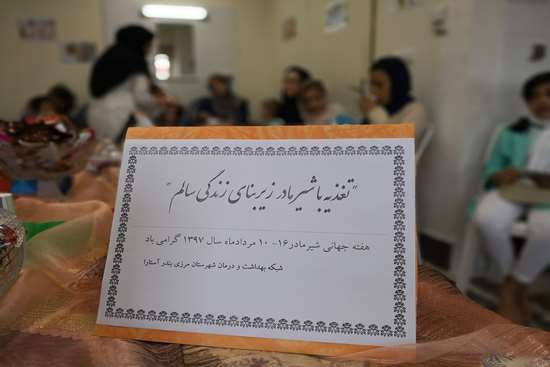 "تغذیه با شیر مادر زیربنای زندگی سالم"
هفته جهانی شیر مادر ۱۶- ۱۰ مردادماه سال ۱۳۹۷ گرامی باد
شبکه بهداشت و درمان شهرستان مرزی بندر آستارا